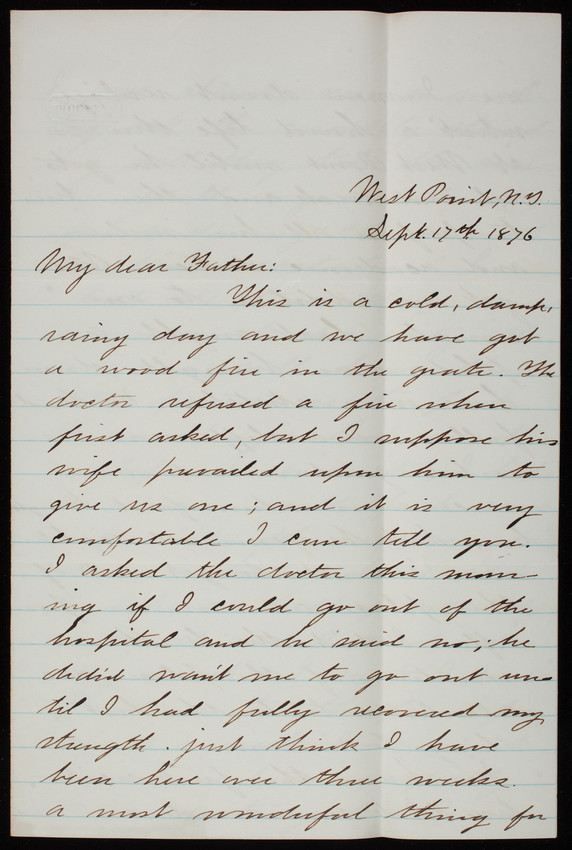 West Point, N.Y.
Sept. 17th 1876
My dear Father:
This is a cold, damp,
rainy day and we have got
a wood fire in the grate. The
doctor refused a fire when
first asked, but I suppose his
wife prevailed upon him to
give us one; and it is very
comfortable I can tell you.
I asked the doctor this morn-
ing if I could go out of the
hospital and he said no; he
did'nt want me to go out un-
til I had fully recovered my
strength. just think I have
been here over three weeks.
a most wonderful thing for